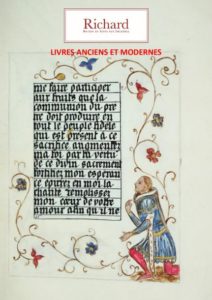 Richard
MAISON DE VENTE AUX ENCHÈRES
LIVRES ANCIENS ET MODERNES
me faire participer
aux fruits que la
communion du pre
tre doit produire en
tout le peuple fidele
qui est présent à ce
sacrifice augmentez
ma foi par la vertu
de ce divin sacrement
fortifiez mon esperan
ce épurez en moi la
charité remplissez
mon cœur de votre
amour afin qu'il ne